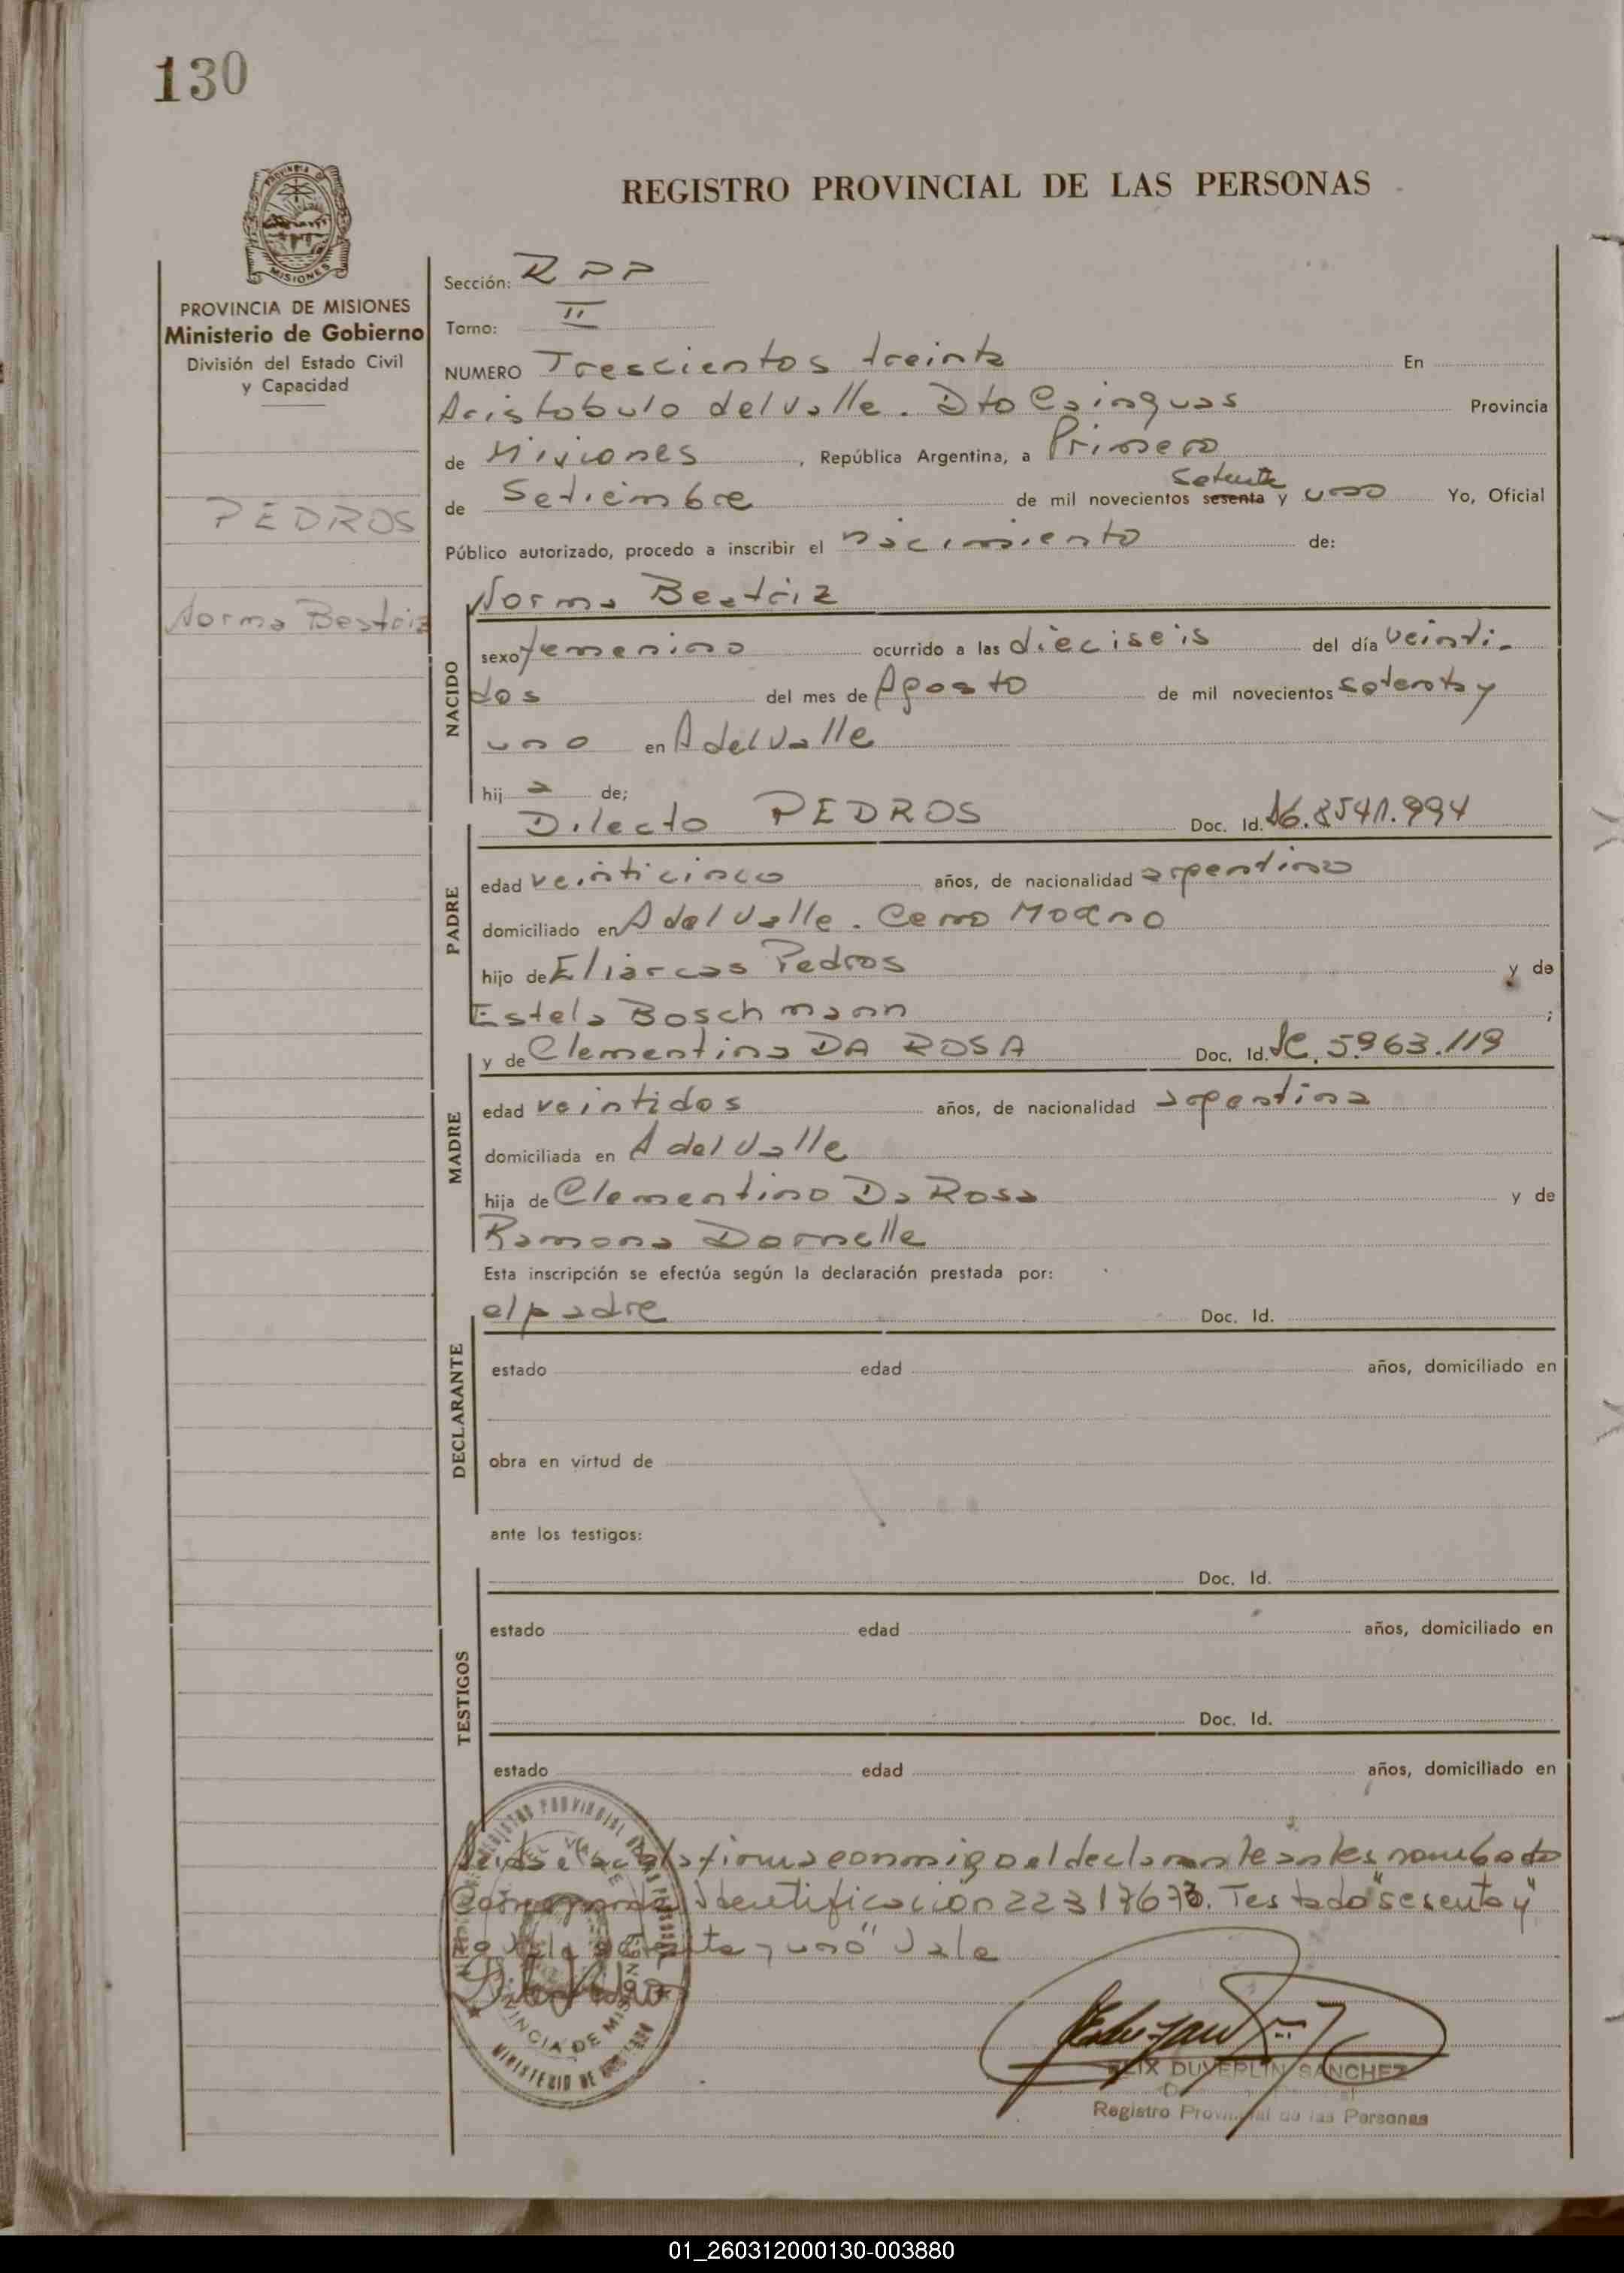 130
REGISTRO PROVINCIAL DE LAS PERSONAS
PROVINCIA DE MISIONES
Ministerio de Gobierno
División del Estado Civil
y Capacidad
PEDROS
Norma Beatriz
Sección: RPP
Tomo: II
NUMERO Trescientos treinta En
Aristobulo del Valle. Dto Cainguas Provincia
de Misiones, República Argentina, a Primero
setenta
de Setiembre de mil novecientos sesenta y uno Yo, Oficial
Público autorizado, procedo a inscribir el nacimiento de:
Norma Beatriz
NACIDO
sexo femenino ocurrido a las dieciseis del día veinti-
dos del mes de Agosto de mil novecientos setenta y
uno en A del Valle
hija de;
Dilecto PEDROS Doc. Id.
PADRE
edad veinticinco años, de nacionalidad argentino
domiciliado en A del Valle. Cerro Moreno
hijo de Eliarcas Pedros y de
Estela Boschmann;
y de Clementina DA ROSA Doc. Id. 5.963.119
MADRE
edad veintidos años, de nacionalidad argentina
domiciliada en A del Valle
hija de Clementino Da Rosa y de
Ramona Dornelle
Esta inscripción se efectúa según la declaración prestada por:
el padre Doc. Id.
DECLARANTE
estado edad años, domiciliado en
obra en virtud de
ante los testigos:
Doc. Id.
TESTIGOS
estado edad años, domiciliado en
Doc. Id.
estado edad años, domiciliado en
Leida el acta la firma conmigo el declarante antes nombrado
identificación 22317673. Testado "sesenta y"
no vale setenta y uno" Vale
PROVINCIA DE MISIONES
MINISTERIO DE GOBIERNO
FELIX DUVERLIN SANCHEZ
Registro Provincial de las Personas
01_260312000130-003880